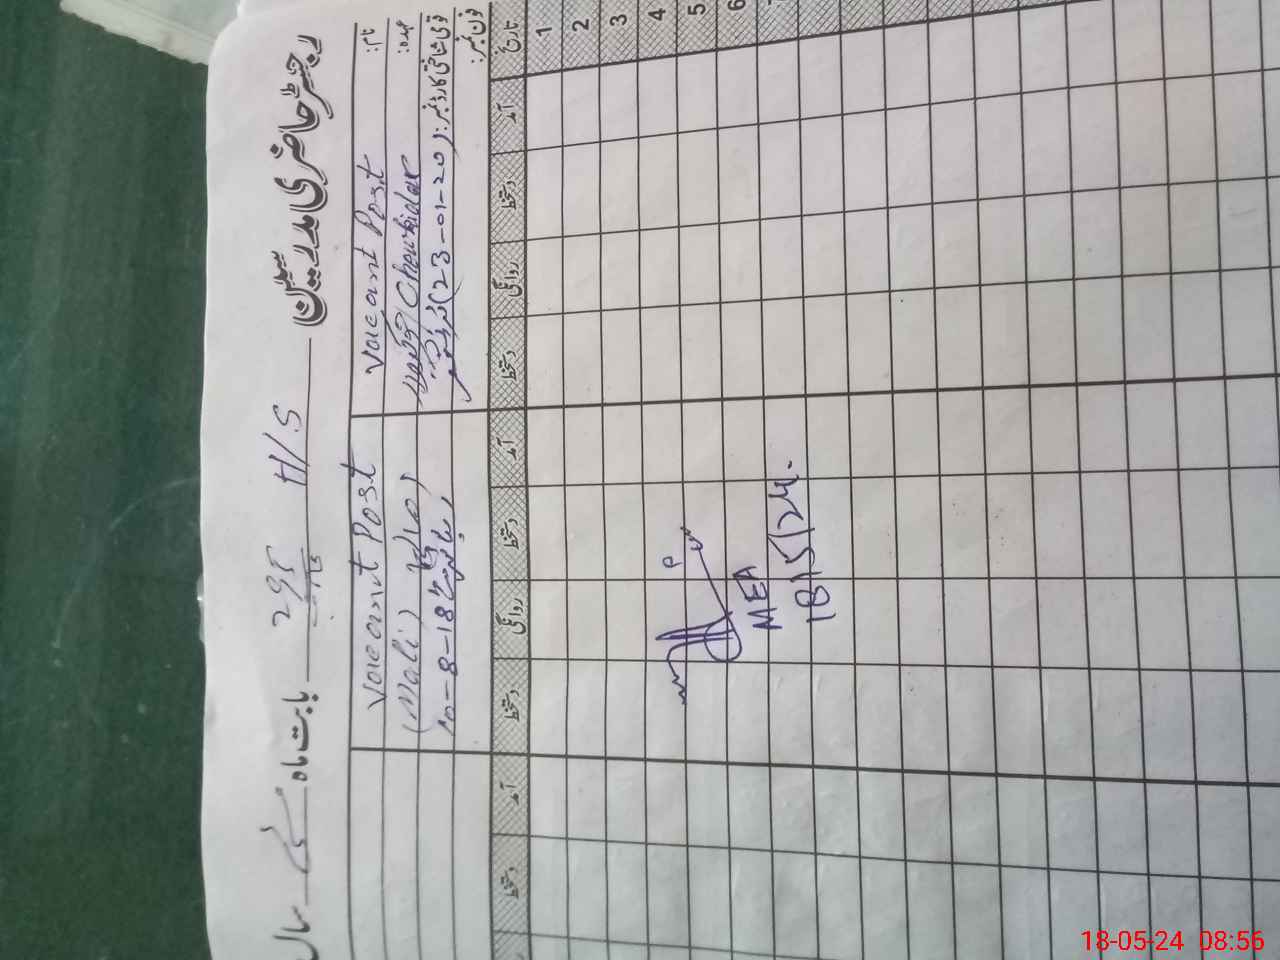 رجسٹر حاضری مدرسین
بابت ماہ مئی سال
H/S
نام:
Vacant Post
Vacant Post
عہدہ:
Chowkidar
(Mali)
قومی شناختی کارڈ نمبر:
(23-01-20)
فون نمبر:
تاریخ آمد دستخط روانگی دستخط آمد دستخط روانگی دستخط آمد دستخط
1
2
3
4
5
6
7
MEA
18/5/24.
18-05-24 08:56